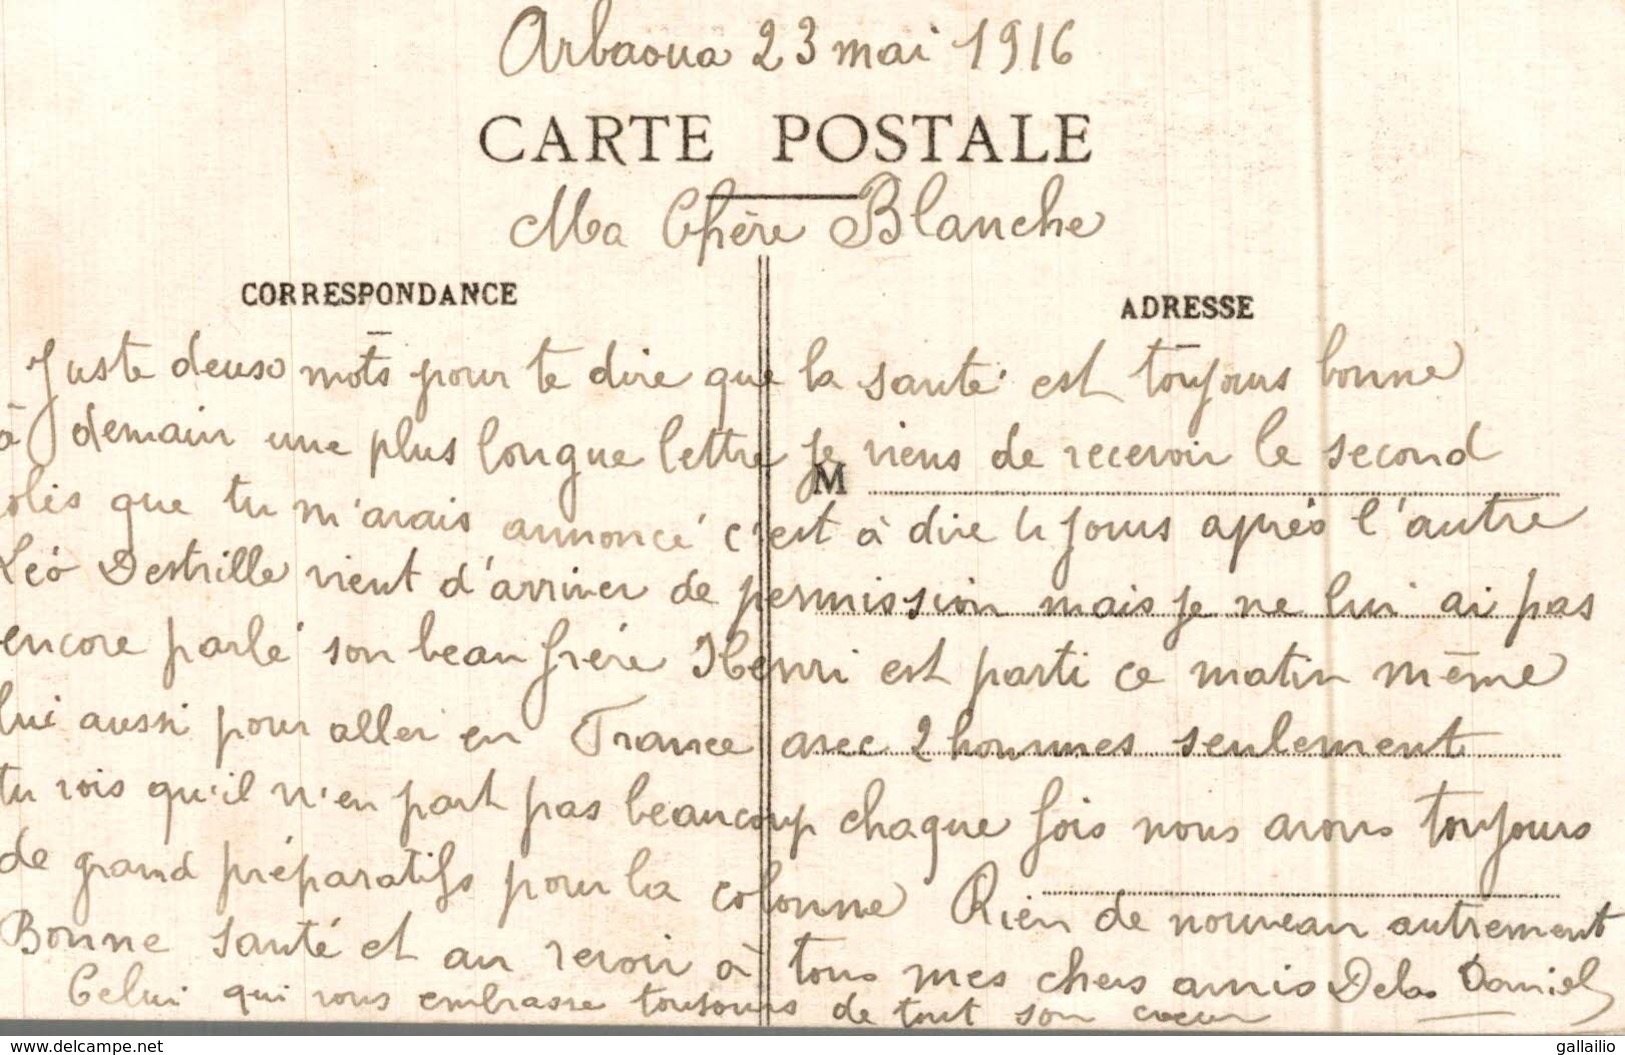 Arbaoua 23 mai 1916
CARTE POSTALE
Ma Chère Blanche
CORRESPONDANCE
ADRESSE
M
Juste deux mots pour te dire que la santé est toujours bonne
à demain une plus longue lettre je viens de recevoir le second
olis que tu m'avais annoncé c'est à dire 4 jours après l'autre
Léo Destrille vient d'arriver de permission mais je ne lui ai pas
encore parlé son beau frère Henri est parti ce matin même
lui aussi pour aller en France avec 2 hommes seulement
tu vois qu'il n'en part pas beaucoup chaque fois nous avons toujours
de grand préparatifs pour la colonne Rien de nouveau autrement
Bonne santé et au revoir à tous mes chers amis Daniel
Celui qui vous embrasse toujours de tout son cœur
www.delcampe.net
gallailio